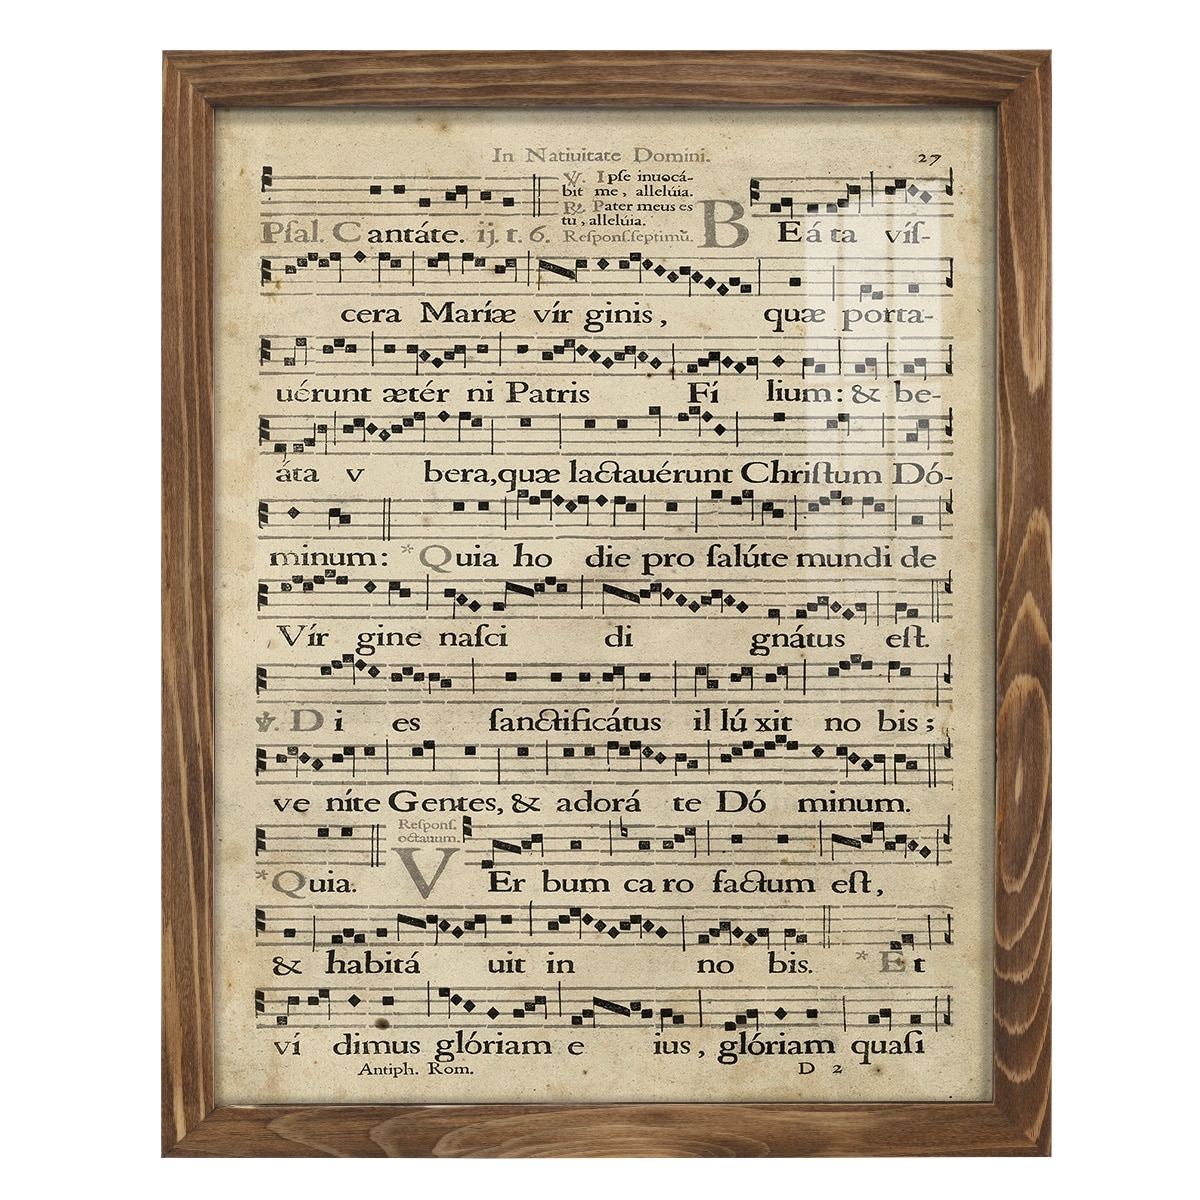 In Natiuitate Domini. 27
℣. Ipſe inuocá-
bit me, allelúia.
℟. Pater meus es
tu, allelúia.
Pſal. Cantáte. ij. t. 6. Reſponſ.ſeptimũ. BEáta víſ-
cera Maríæ vír ginis, quæ porta-
uérunt ætér ni Patris Fí lium: & be-
áta v bera, quæ lactauérunt Chriſtum Dó-
minum: *Quia ho die pro ſalúte mundi de
Vír gine naſci di gnátus eſt.
℣. Di es ſanctificátus il lú xit no bis;
ve níte Gentes, & adorá te Dó minum.
Reſponſ.
octauum.
*Quia. VEr bum caro factum eſt,
& habitá uit in no bis. *Et
ví dimus glóriam e ius, glóriam quaſi
Antiph. Rom. D 2